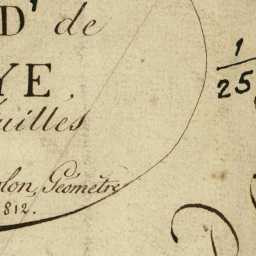 D' de
YE
uilles
lon, Géomètre
812.
1/25